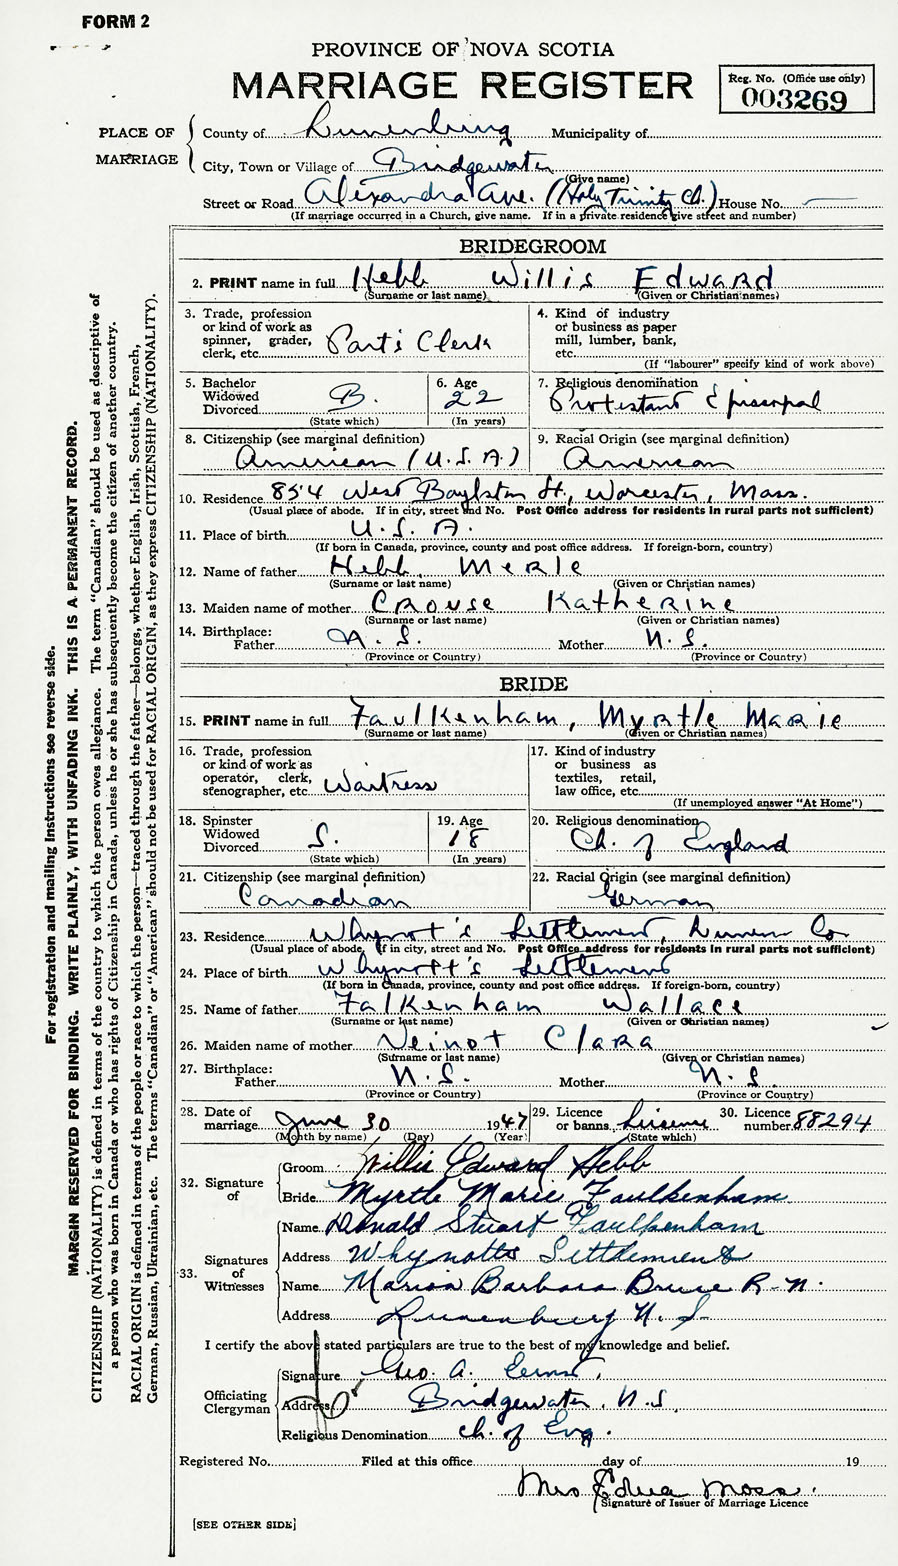 FORM 2
PROVINCE OF NOVA SCOTIA
MARRIAGE REGISTER
Reg. No. (Office use only)
003269
PLACE OF MARRIAGE
County of Lunenburg Municipality of
City, Town or Village of Bridgewater
(Give name)
Street or Road Alexandra Ave. (Holy Trinity Ch.) House No. —
(If marriage occurred in a Church, give name. If in a private residence give street and number)
BRIDEGROOM
2. PRINT name in full Hebb Willis Edward
(Surname or last name) (Given or Christian names)
3. Trade, profession or kind of work as spinner, grader, clerk, etc. Parts Clerk
4. Kind of industry or business as paper mill, lumber, bank, etc.
(If "labourer" specify kind of work above)
5. Bachelor Widowed Divorced B.
(State which)
6. Age 22
(In years)
7. Religious denomination Protestant Episcopal
8. Citizenship (see marginal definition)
American (U.S.A.)
9. Racial Origin (see marginal definition)
American
10. Residence 854 West Boylston St., Worcester, Mass.
(Usual place of abode. If in city, street and No. Post Office address for residents in rural parts not sufficient)
11. Place of birth U.S.A.
(If born in Canada, province, county and post office address. If foreign-born, country)
12. Name of father Hebb, Merle
(Surname or last name) (Given or Christian names)
13. Maiden name of mother Crouse Katherine
(Surname or last name) (Given or Christian names)
14. Birthplace: Father N.S. Mother N.S.
(Province or Country) (Province or Country)
BRIDE
15. PRINT name in full Faulkenham, Myrtle Marie
(Surname or last name) (Given or Christian names)
16. Trade, profession or kind of work as operator, clerk, stenographer, etc. Waitress
17. Kind of industry or business as textiles, retail, law office, etc.
(If unemployed answer "At Home")
18. Spinster Widowed Divorced S.
(State which)
19. Age 18
(In years)
20. Religious denomination
Ch. of England
21. Citizenship (see marginal definition)
Canadian
22. Racial Origin (see marginal definition)
German
23. Residence Whynot's Settlement, Lunen Co
(Usual place of abode, If in city, street and No. Post Office address for residents in rural parts not sufficient)
24. Place of birth Whynott's Settlement
(If born in Canada, province, county and post office address. If foreign-born, country)
25. Name of father Falkenham Wallace
(Surname or last name) (Given or Christian names)
26. Maiden name of mother Veinot Clara
(Surname or last name) (Given or Christian names)
27. Birthplace: Father N.S. Mother N.S.
(Province or Country) (Province or Country)
28. Date of marriage June 30 1947
(Month by name) (Day) (Year)
29. Licence or banns License
(State which)
30. Licence number 88294
32. Signature of
Groom Willis Edward Hebb
Bride Myrtle Marie Faulkenham
33. Signatures of Witnesses
Name Donald Stuart Faulkenham
Address Whynotts Settlement
Name Marion Barbara Bruce R.N.
Address Lunenburg N.S.
I certify the above stated particulars are true to the best of my knowledge and belief.
Officiating Clergyman
Signature Geo. A. Ernst.
Address Bridgewater, N.S.
Religious Denomination Ch. of Eng.
Registered No. Filed at this office day of 19
Mrs Edna Moss.
Signature of Issuer of Marriage Licence
[SEE OTHER SIDE]
For registration and mailing instructions see reverse side.
MARGIN RESERVED FOR BINDING. WRITE PLAINLY, WITH UNFADING INK. THIS IS A PERMANENT RECORD.
CITIZENSHIP (NATIONALITY) is defined in terms of the country to which the person owes allegiance. The term "Canadian" should be used as descriptive of
a person who was born in Canada or who has rights of Citizenship in Canada, unless he or she has subsequently become the citizen of another country.
RACIAL ORIGIN is defined in terms of the people or race to which the person—traced through the father—belongs, whether English, Irish, Scottish, French,
German, Russian, Ukrainian, etc. The terms "Canadian" or "American" should not be used for RACIAL ORIGIN, as they express CITIZENSHIP (NATIONALITY).